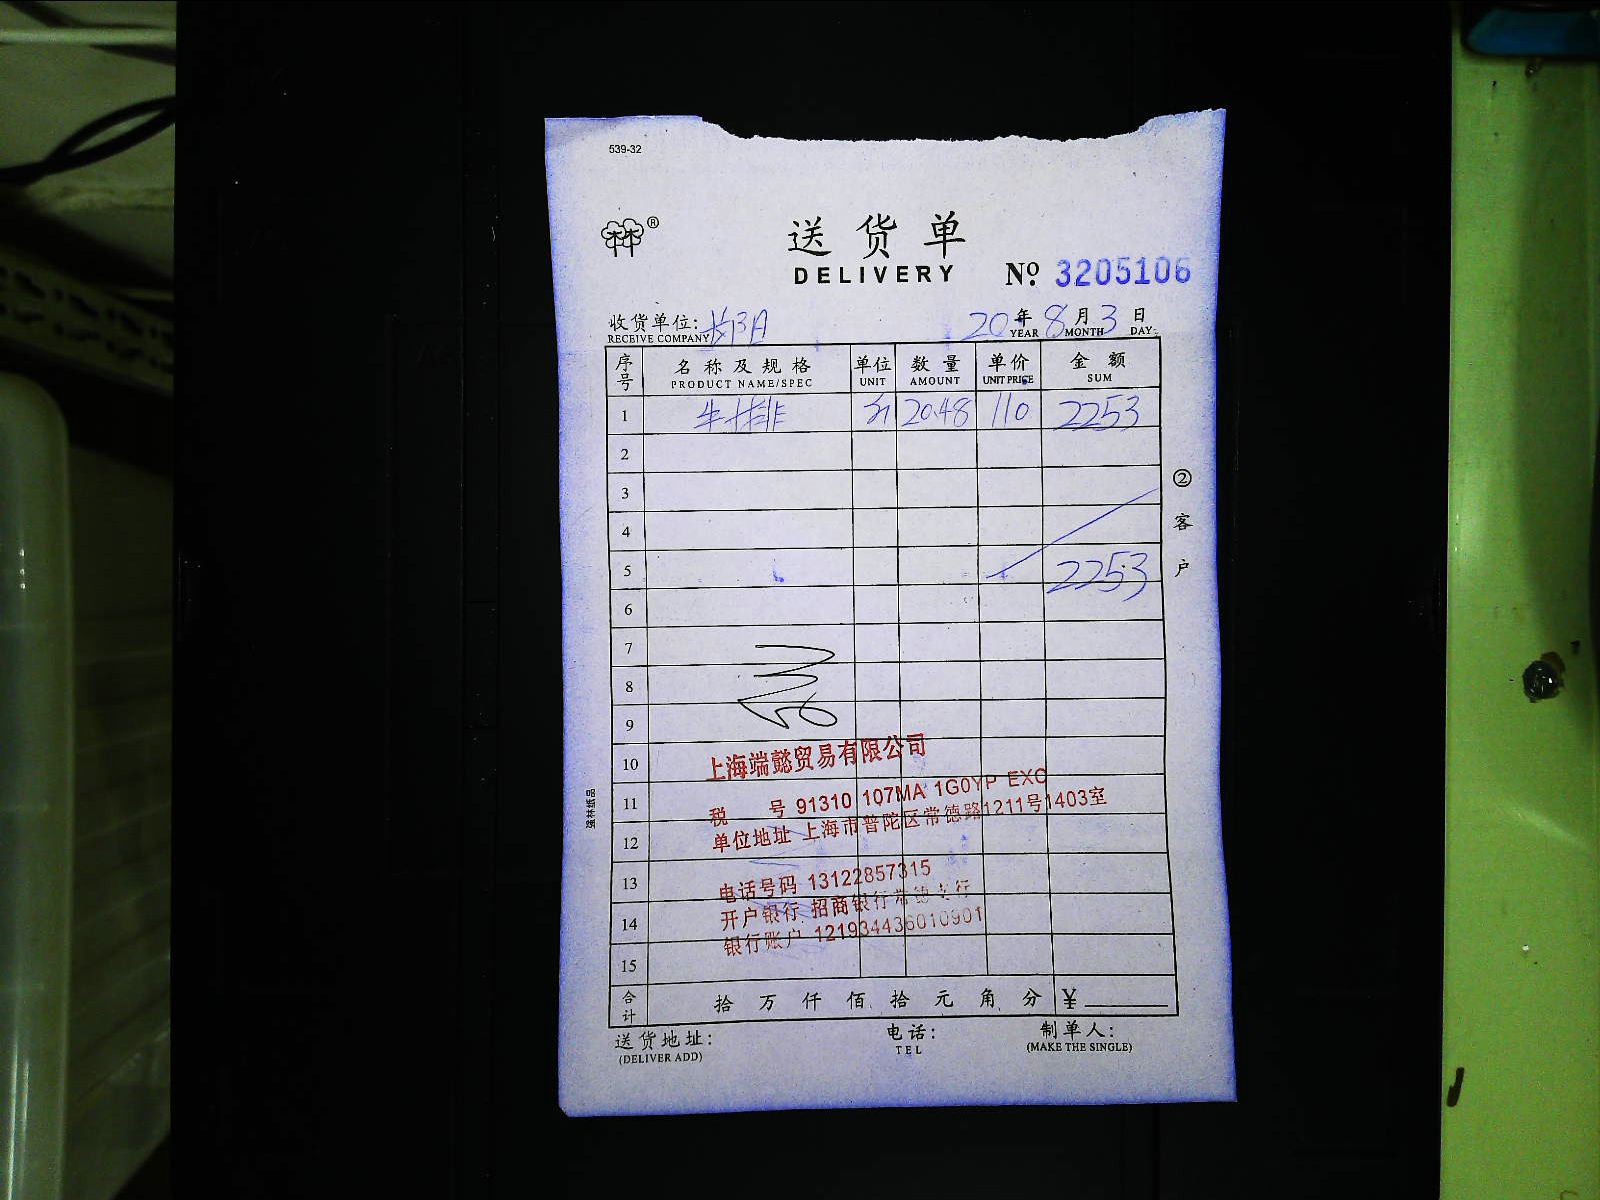 539-32
送货单
DELIVERY № 3205106
收货单位: 20年8月3日
RECEIVE COMPANY YEAR MONTH DAY
序号 名称及规格 单位 数量 单价 金额
PRODUCT NAME/SPEC UNIT AMOUNT UNIT PRICE SUM
1 牛排 斤 20.48 110 2253
2
3
4
5 2253
6
7
8
9
10
11
12
13
14
15
上海端懿贸易有限公司
税 号 91310 107MA 1G0YP EXC
单位地址 上海市普陀区常德路1211号1403室
电话号码 13122857315
开户银行 招商银行常德支行
银行账户 121934436010901
合计 拾 万 仟 佰 拾 元 角 分 ¥
送货地址: 电话: 制单人:
(DELIVER ADD) TEL (MAKE THE SINGLE)
②客户
强林纸品